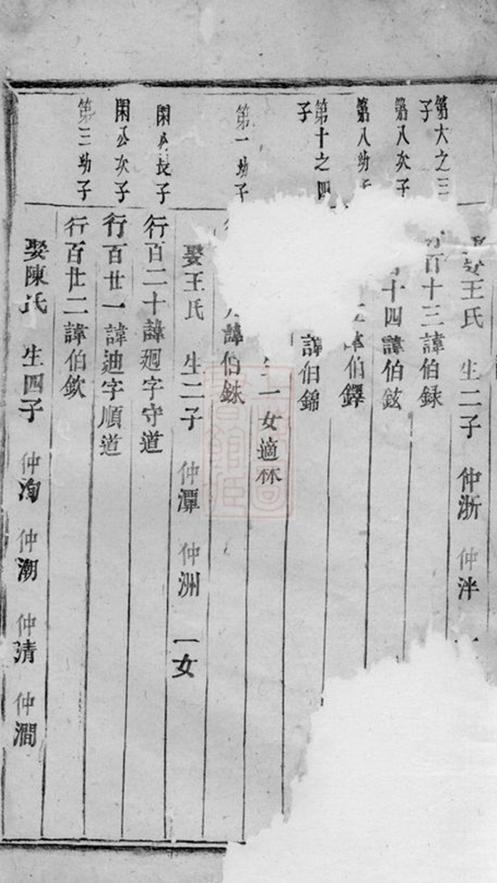 娶王氏 生二子 仲浙 仲泮 一
第六之三子
百十三諱伯録
第八次子
十四諱伯鉉
第八幼子
伯鐸
第十之四子
諱伯錦
一女適林
第一幼子
諱伯銖
娶王氏 生二子 仲潭 仲洲 一女
閑公長子
行百二十諱廻字守道
閑公次子
行百廿一諱迪字順道
第三幼子
行百廿二諱伯欽
娶陳氏 生四子 仲洵 仲潮 仲清 仲澗